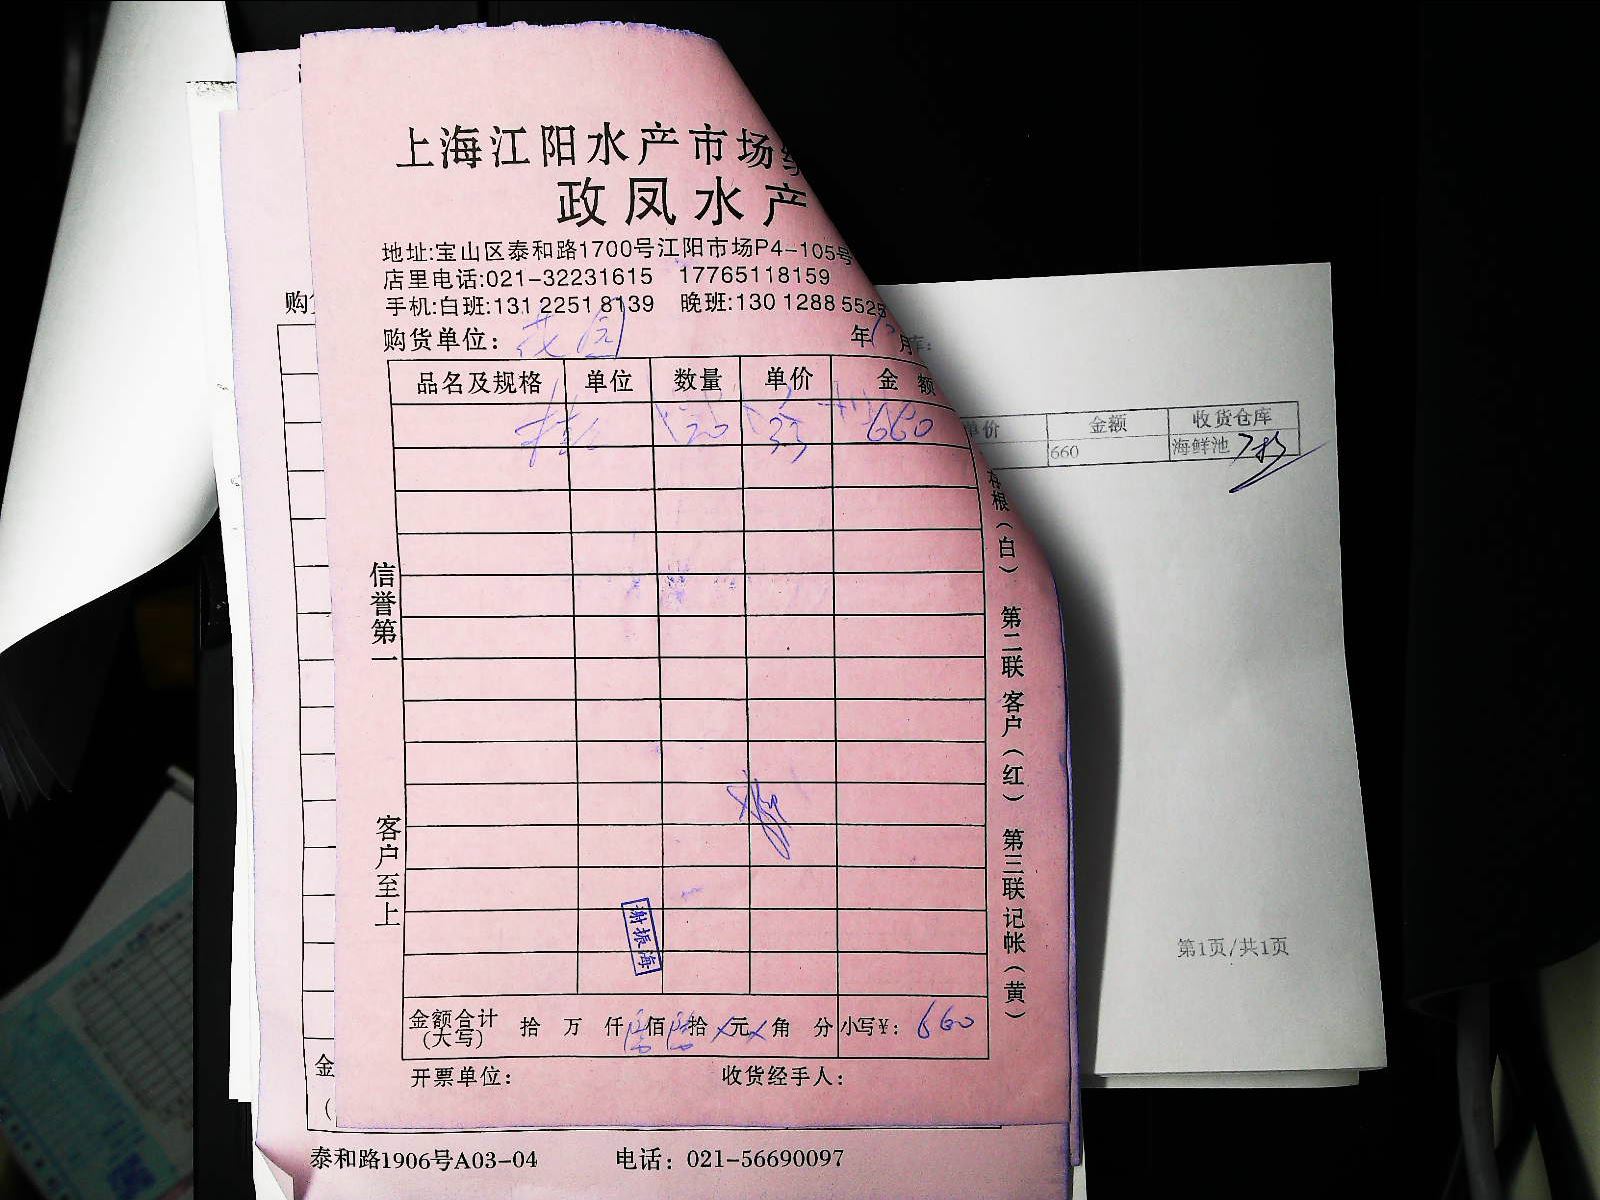 上海江阳水产市场
政凤水产
地址:宝山区泰和路1700号江阳市场P4-105号
店里电话:021-32231615 17765118159
手机:白班:131 2251 8139 晚班:130 1288 5525
购货单位: 花园 年 月
品名及规格 单位 数量 单价 金额
桂 20 33 660
信誉第一
客户至上
存根(白) 第二联 客户(红) 第三联 记帐(黄)
谢振海
金额合计 拾 万 仟 陆 佰 陆 拾 元 角 分 小写¥: 660
(大写)
开票单位: 收货经手人:
购
金
(
泰和路1906号A03-04 电话: 021-56690097
库:
单价 金额 收货仓库
660 海鲜池
第1页/共1页